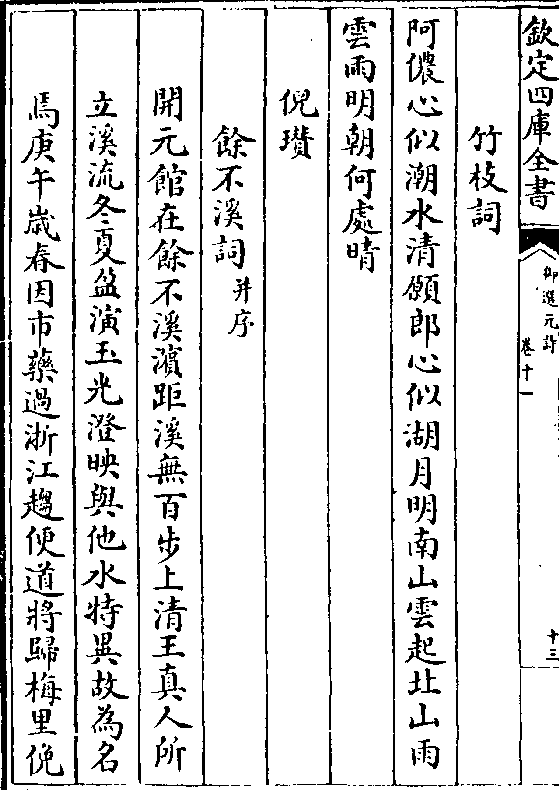 欽定四庫全書
御選元詩
卷十一
十三
竹枝詞
阿儂心似潮水清願郎心似湖月明南山雲起北山雨
雲雨明朝何處晴
倪瓚
餘不溪詞并序
開元館在餘不溪濵距溪無百步上清王真人所
立溪流冬夏盈演玉光澄映與他水特異故為名
焉庚午歲春因市藥過浙江趨便道將歸梅里俛